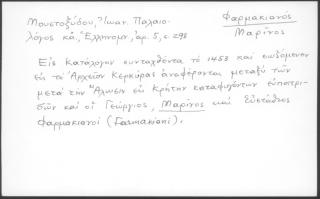 Μουστοξύδου, Ἰωαν. Παλαιο-
λόγος κἀ, "Ἑλληνομν", ἀρ. 5, σ. 298
Φαρμακιανος
Μαρῖνος
Εἰς Κατάλογον συνταχθέντα τὸ 1453 καὶ σωζόμενον
εἰς τὸ Ἀρχεῖον Κερκύρας ἀναφέρονται μεταξὺ τῶν
μετὰ τὴν Ἅλωσιν εἰς Κρήτην καταφυγόντων εὐπατρι-
δῶν καὶ οἱ Γεώργιος, Μαρῖνος καὶ Εὐστάθιος
Φαρμακιανοί (Farmakiani).